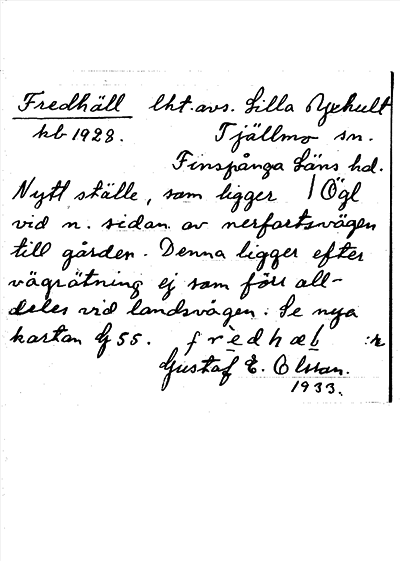 Fredhäll lht. avs. Lilla Yxhult
kb 1928. Tjällmo sn.
Finspånga Läns hd.
Nytt ställe, som ligger / Ögl
vid n. sidan av nerfartsvägen
till gården. Denna ligger efter
vägrätning ej som förr all-
deles vid landsvägen. Se nya
kartan G 55. frèdhæḷ :r
Gustaf E. Olsson.
1933.